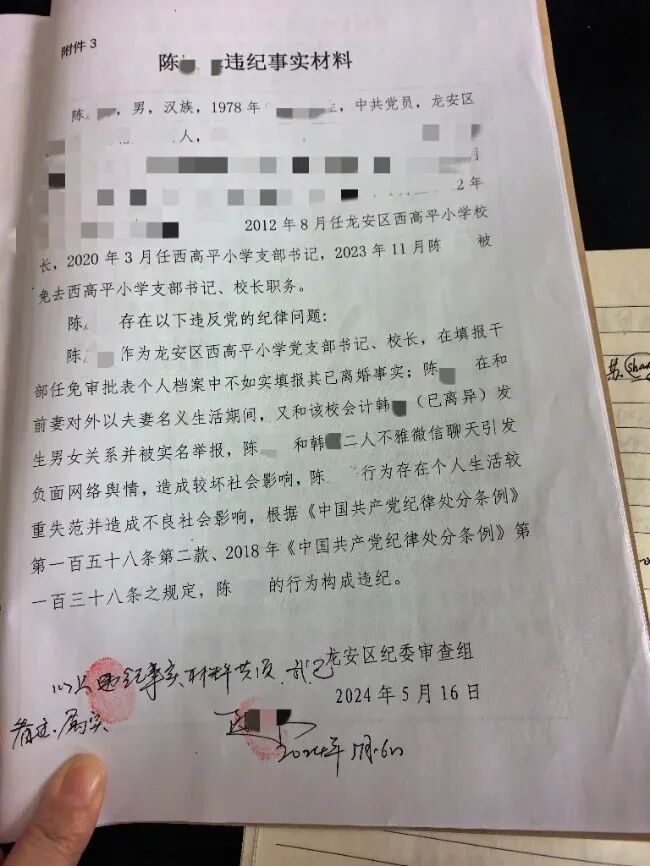 附件3
陈 违纪事实材料
陈 ,男,汉族,1978年 ,中共党员,龙安区
人,
月
2年
2012年8月任龙安区西高平小学校
长,2020年3月任西高平小学支部书记,2023年11月陈 被
免去西高平小学支部书记、校长职务。
陈 存在以下违反党的纪律问题:
陈 作为龙安区西高平小学党支部书记、校长,在填报干
部任免审批表个人档案中不如实填报其已离婚事实;陈 在和
前妻对外以夫妻名义生活期间,又和该校会计韩 (已离异)发
生男女关系并被实名举报,陈 和韩 二人不雅微信聊天引发
负面网络舆情,造成较坏社会影响,陈 行为存在个人生活较
重失范并造成不良社会影响,根据《中国共产党纪律处分条例》
第一百五十八条第二款、2018年《中国共产党纪律处分条例》第
一百三十八条之规定,陈 的行为构成违纪。
龙安区纪委审查组
2024年5月16日
以上违纪事实材料共1页,我已
看过,属实
2024年5月16日